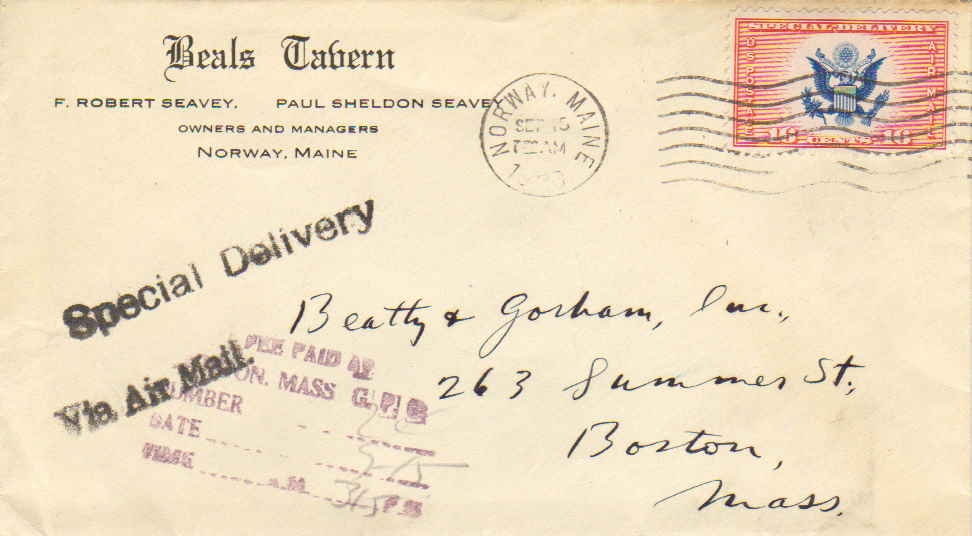 Beals Tavern
F. ROBERT SEAVEY, PAUL SHELDON SEAVEY
OWNERS AND MANAGERS
NORWAY, MAINE
NORWAY, MAINE
SEP 15
AM
SPECIAL DELIVERY
AIR MAIL
16 CENTS 16
Special Delivery
Via Air Mail.
Beatty & Gorham, Inc.,
263 Summer St.,
Boston,
Mass.
FEE PAID AT
MASS G.P.O
NUMBER
DATE 9-15
TIME A.M. 315 P.M